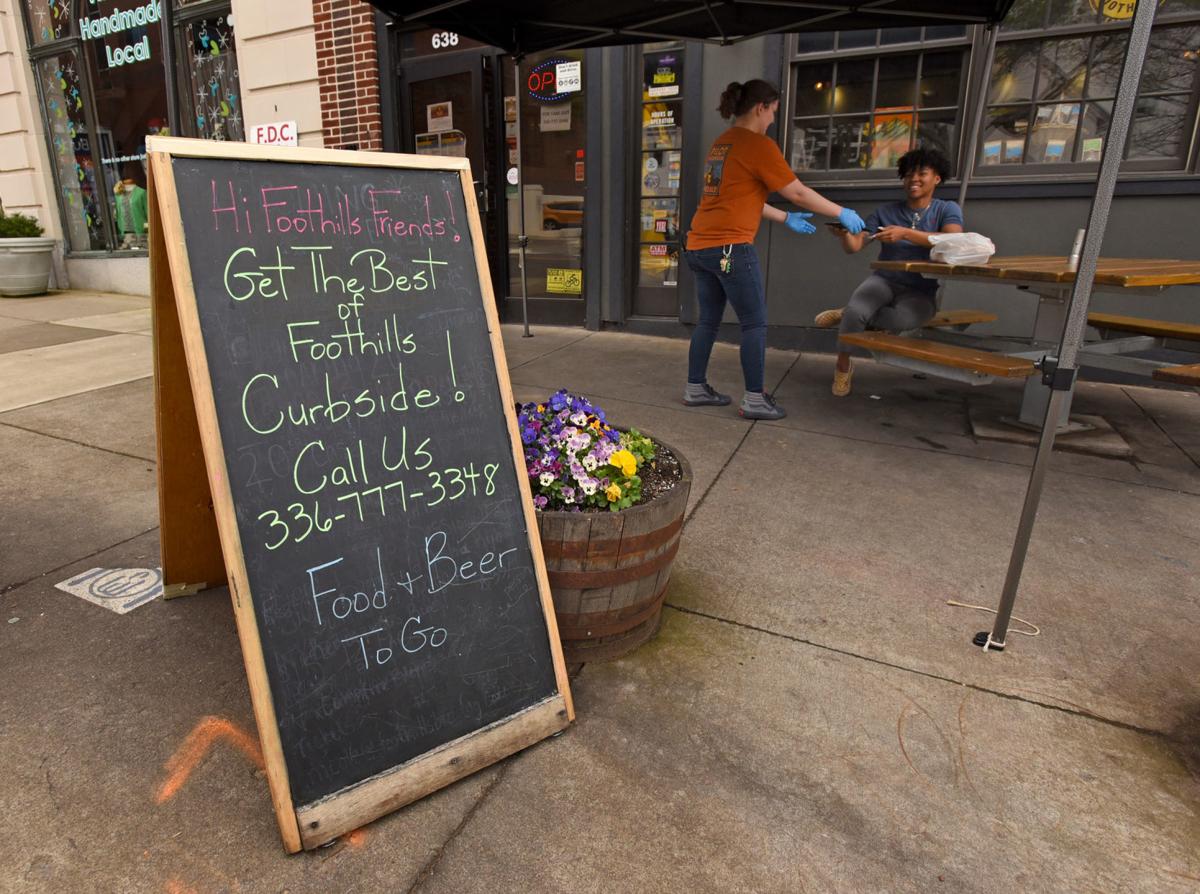 Handmade
Local
638
OP
F.D.C.
HOURS OF
OPERATION
ATM
Hi Foothills Friends!
Get The Best
of
Foothills
Curbside!
Call Us
336-777-3348
Food + Beer
To Go